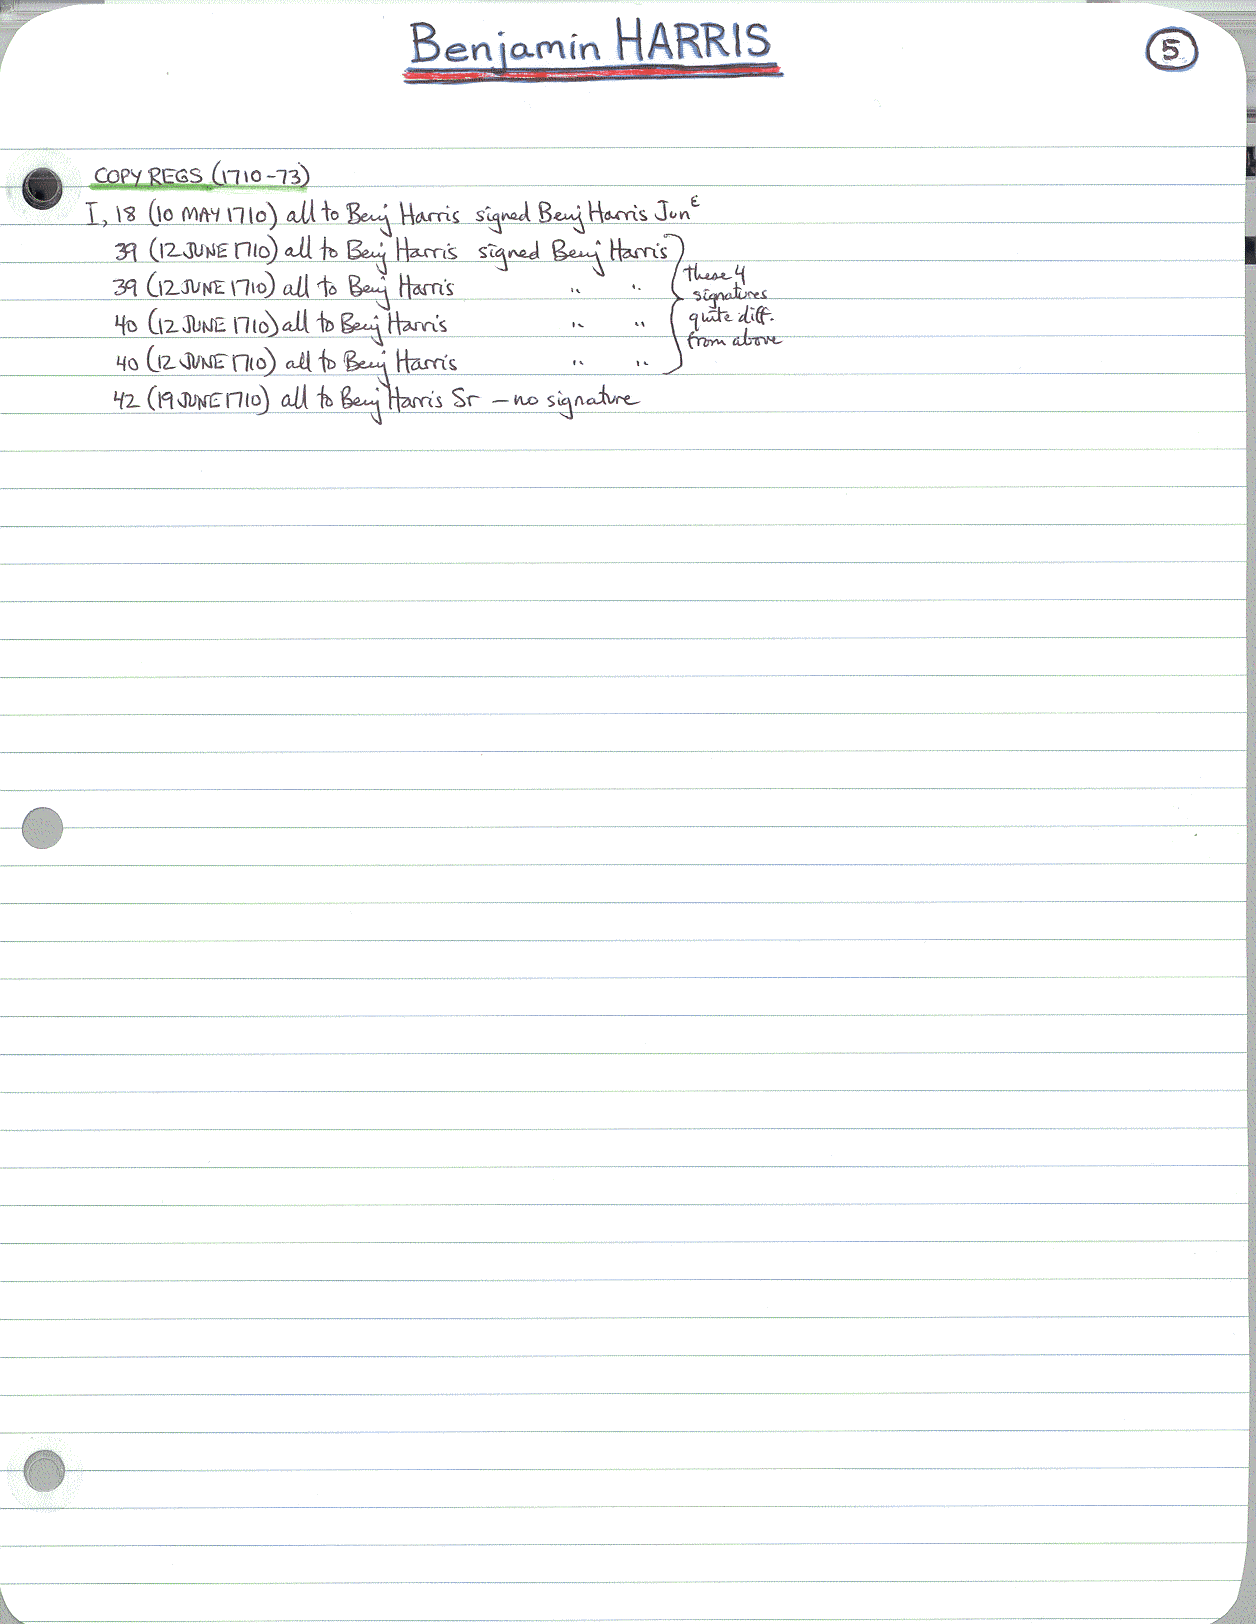 Benjamin HARRIS
5
COPY REGS (1710-73)
I, 18 (10 MAY 1710) all to Benj Harris signed Benj Harris Junᴱ
39 (12 JUNE 1710) all to Benj Harris signed Benj Harris
39 (12 JUNE 1710) all to Benj Harris " "
40 (12 JUNE 1710) all to Benj Harris " "
40 (12 JUNE 1710) all to Benj Harris " "
these 4
signatures
quite diff.
from above
42 (19 JUNE 1710) all to Benj Harris Sr – no signature